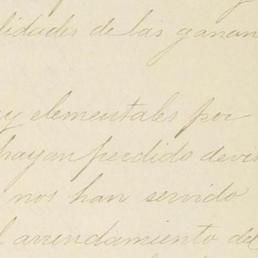 y
lidades de las ganan
y elementales por
hayan perdido
nos han servido
l arrendamiento del